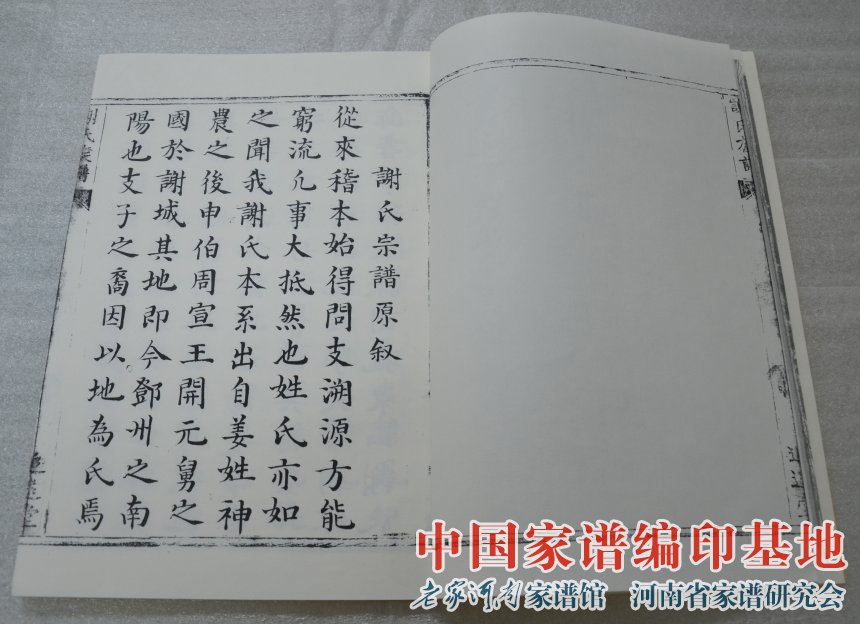 謝氏宗譜原叙
從來稽本始得問支溯源方能
窮流凢事大抵然也姓氏亦如
之聞我謝氏本系出自姜姓神
農之後申伯周宣王開元舅之
國於謝城其地即今鄧州之南
陽也支子之裔因以地為氏焉
謝氏族譜
中国家谱编印基地
老家河南家谱馆 河南省家谱研究会